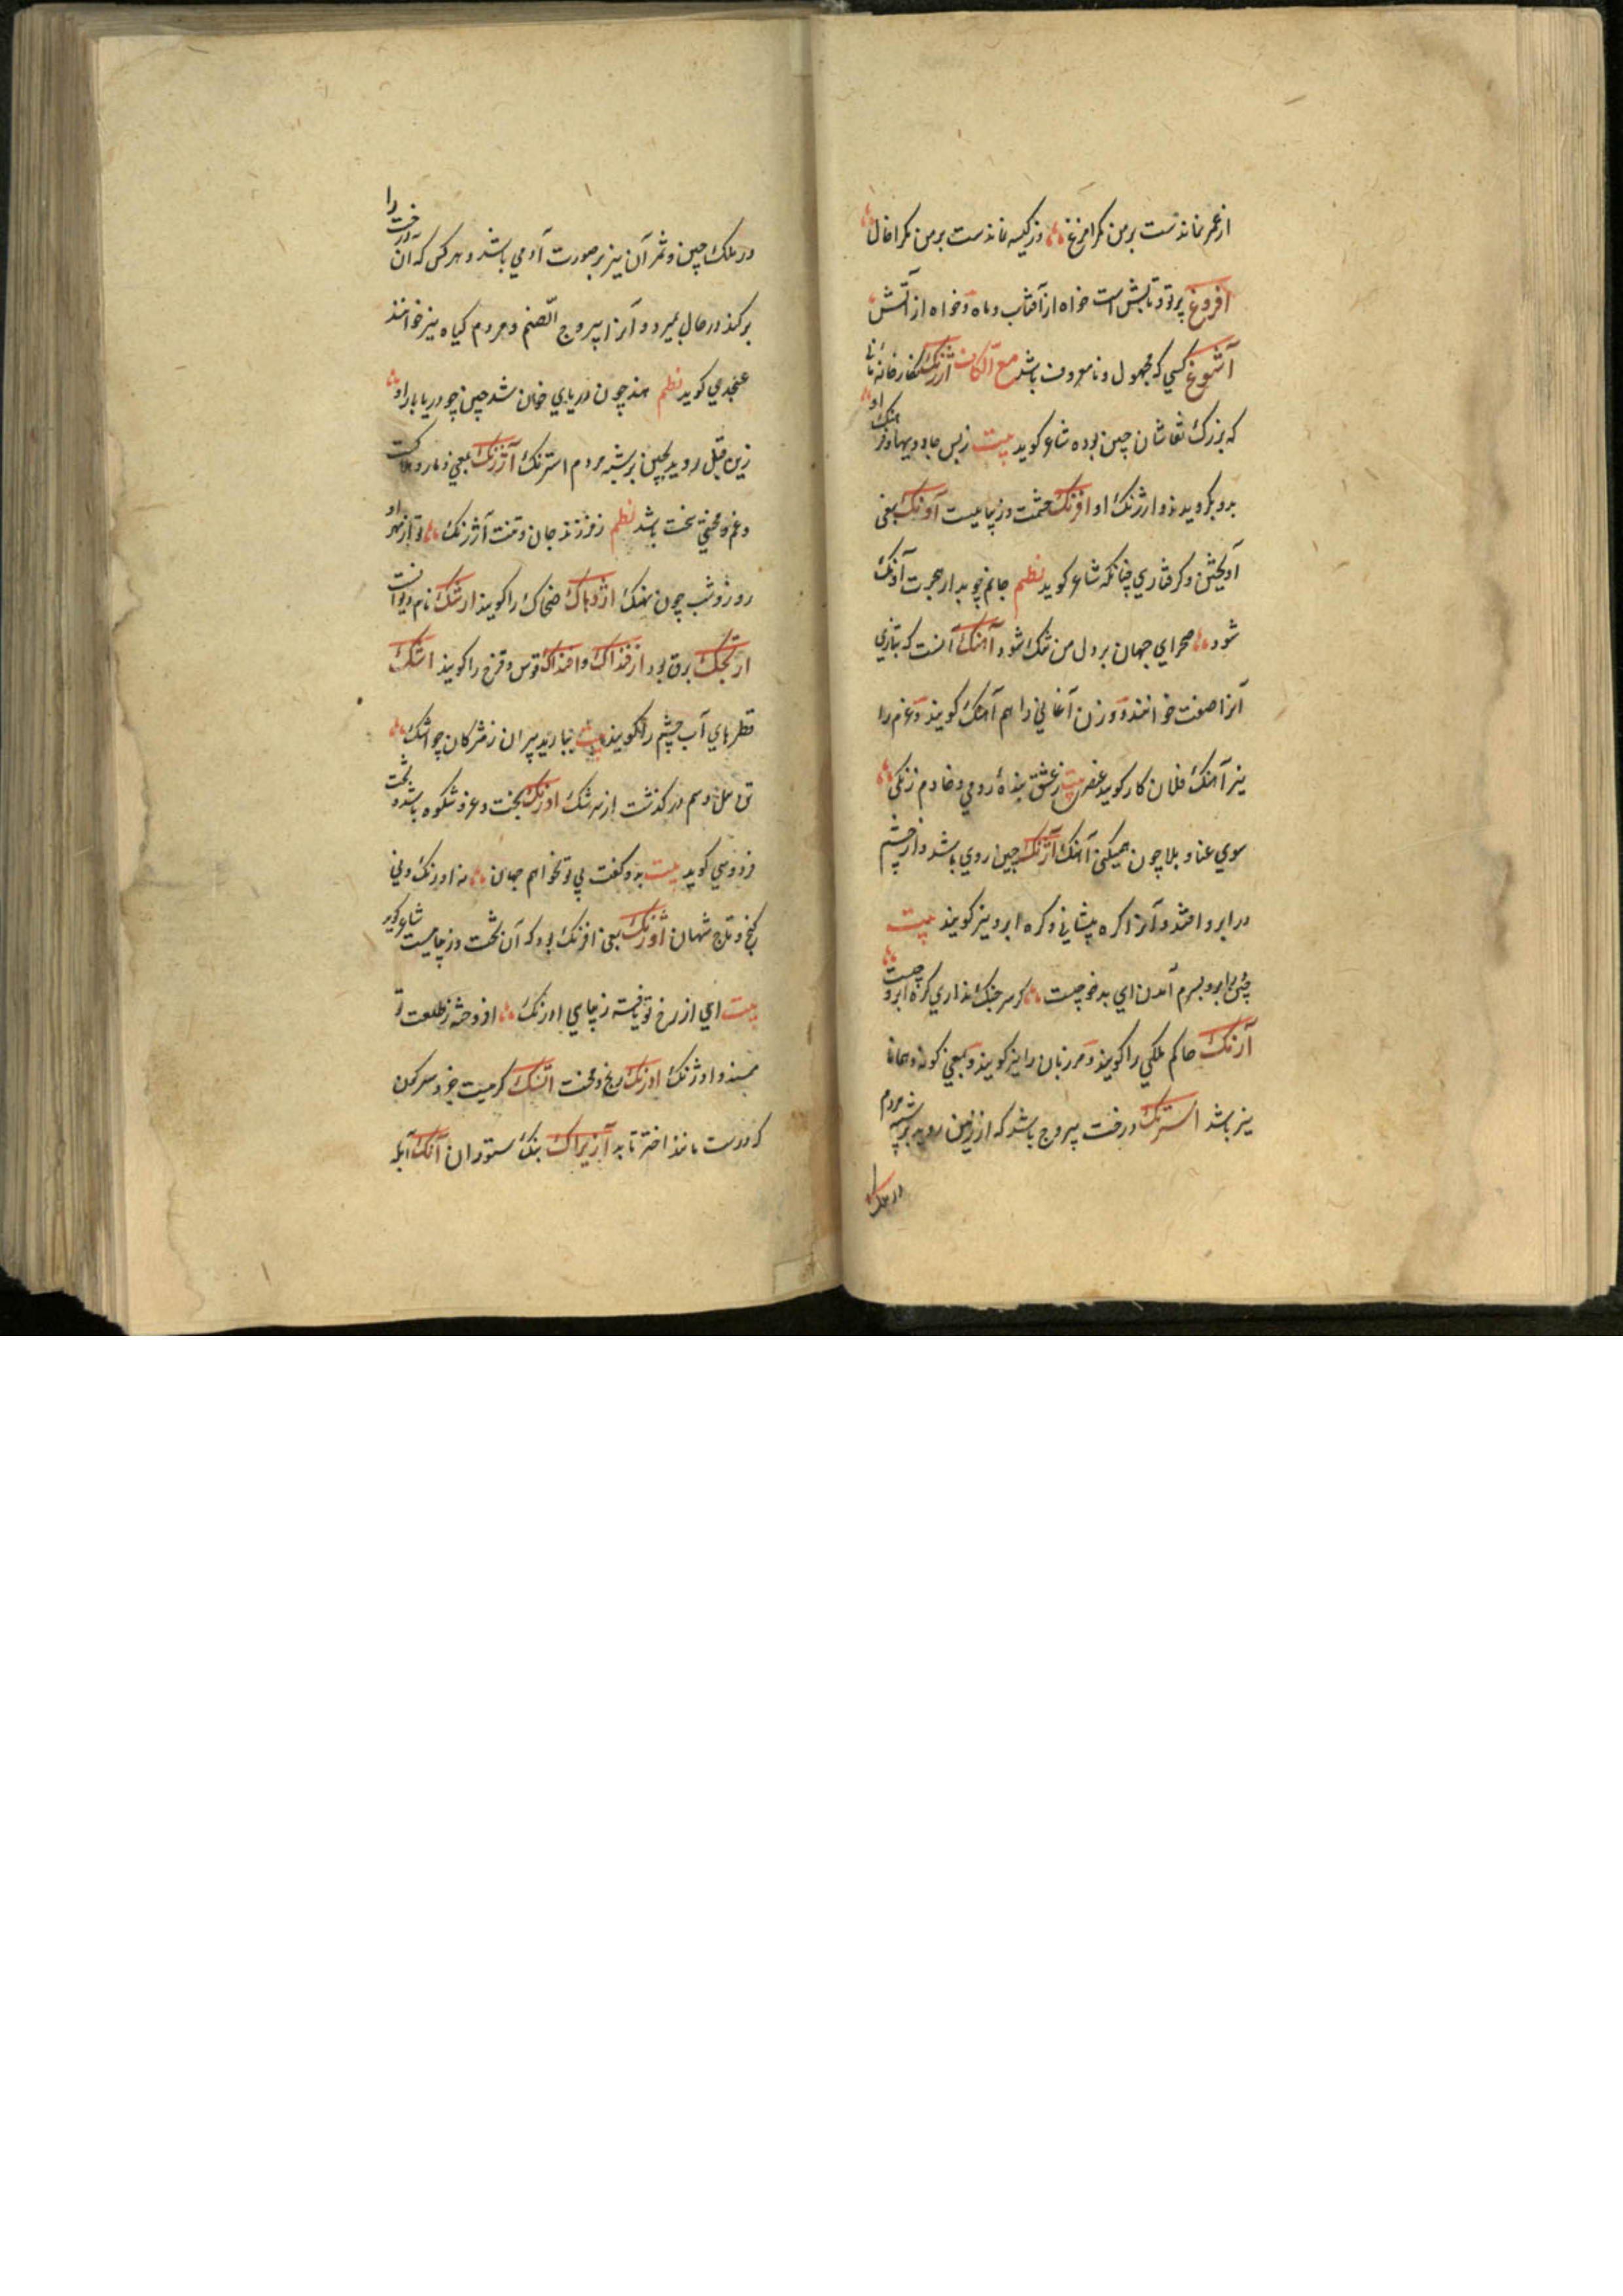 ازعمر نماندست برمن مکر امرغ وز کیسه نماندست برمن مکر اخال
افروغ پرتو و تابش است خواه از آفتاب و ماه و خواه از آتش
آشوغ کسی که مجهول و نامعروف باشد مع الکاف ارژنک نکارخانه مانی
که بزرک نقاشان چین بوده شاعر کوید بیت زبس جادویها و فرهنک او
بدو بکرویدند و ارژنک او افرنک حشمت و زیباییست آونک بمعنی
آویختن و کرفتاری چنانکه شاعر کوید نظم جانم چو بدار هجرت آونک
شود صحرای جهان بر دل من تنک شود آهنک آنست که بتازی
آنرا صفت خوانند و وزن آغانی را هم آهنک کویند و عزم را
نیز آهنک فلان کار کوید عنصری بیت زعشق بندهٔ رومی و خادم زنکی
سوی عنا و بلا چون همیکنی آهنک آژنک چین روی باشد و از خشم
در ابرو افتد و آنرا کره پیشانی و کره ابرو نیز کویند بیت
چین برابرو بسرم آمدن ای بدخو چیست کر سر جنک نداری کره ابرو چیست
آرنک حاکم ملکی را کویند و مرزبان را نیز کویند و بمعنی کونه و همانا
نیز باشد استرنک درخت یبروج باشد که از زمین روید برشبه مردم
در ملک
در ملک چین و ثمر آن نیز بر صورت آدمی باشد و هر کس که آن درخت را
برکند در حال بمیرد و آنرا یبروج الصنم و مردم کیاه نیز خوانند
عسجدی کوید نظم هند چون دریای خون شد چین چو دریا بار او
زین قبل روید بچین برشبه مردم استرنک آژرنک بمعنی دمار و هلاکت
و غم و محنتی سخت باشد نظم ز فرزند جان و تنت آژرنک تو از مهر او
روز و شب چون نهنک اژدهاک ضحاک را کویند ارشنک نام دیوانست
ارتجک برق بود ازفنداک و افنداک قوس و قزح را کویند اشک
قطرهای آب چشم را کویند بیت ببارید پیران ز مژکان چو اشک
در کذشت از سرشک اورنک تخت و عز و شکوه باشد و تخت
فردوسی کوید بیت بدو کفت بی تو نخواهم جهان نه اورنک و نی
کنج و تاج شهان اورنک بمعنی افرنک بود که آن تخت و زیباییست شاعر کوید
بیت ای از رخ تو یافته زیبایی اورنک افروخته ز طلعت تو
مسند و اورنک اورنک رنج و محنت
که درست مانند اختر تابد آزیراک بنک ستوران آنک آبله